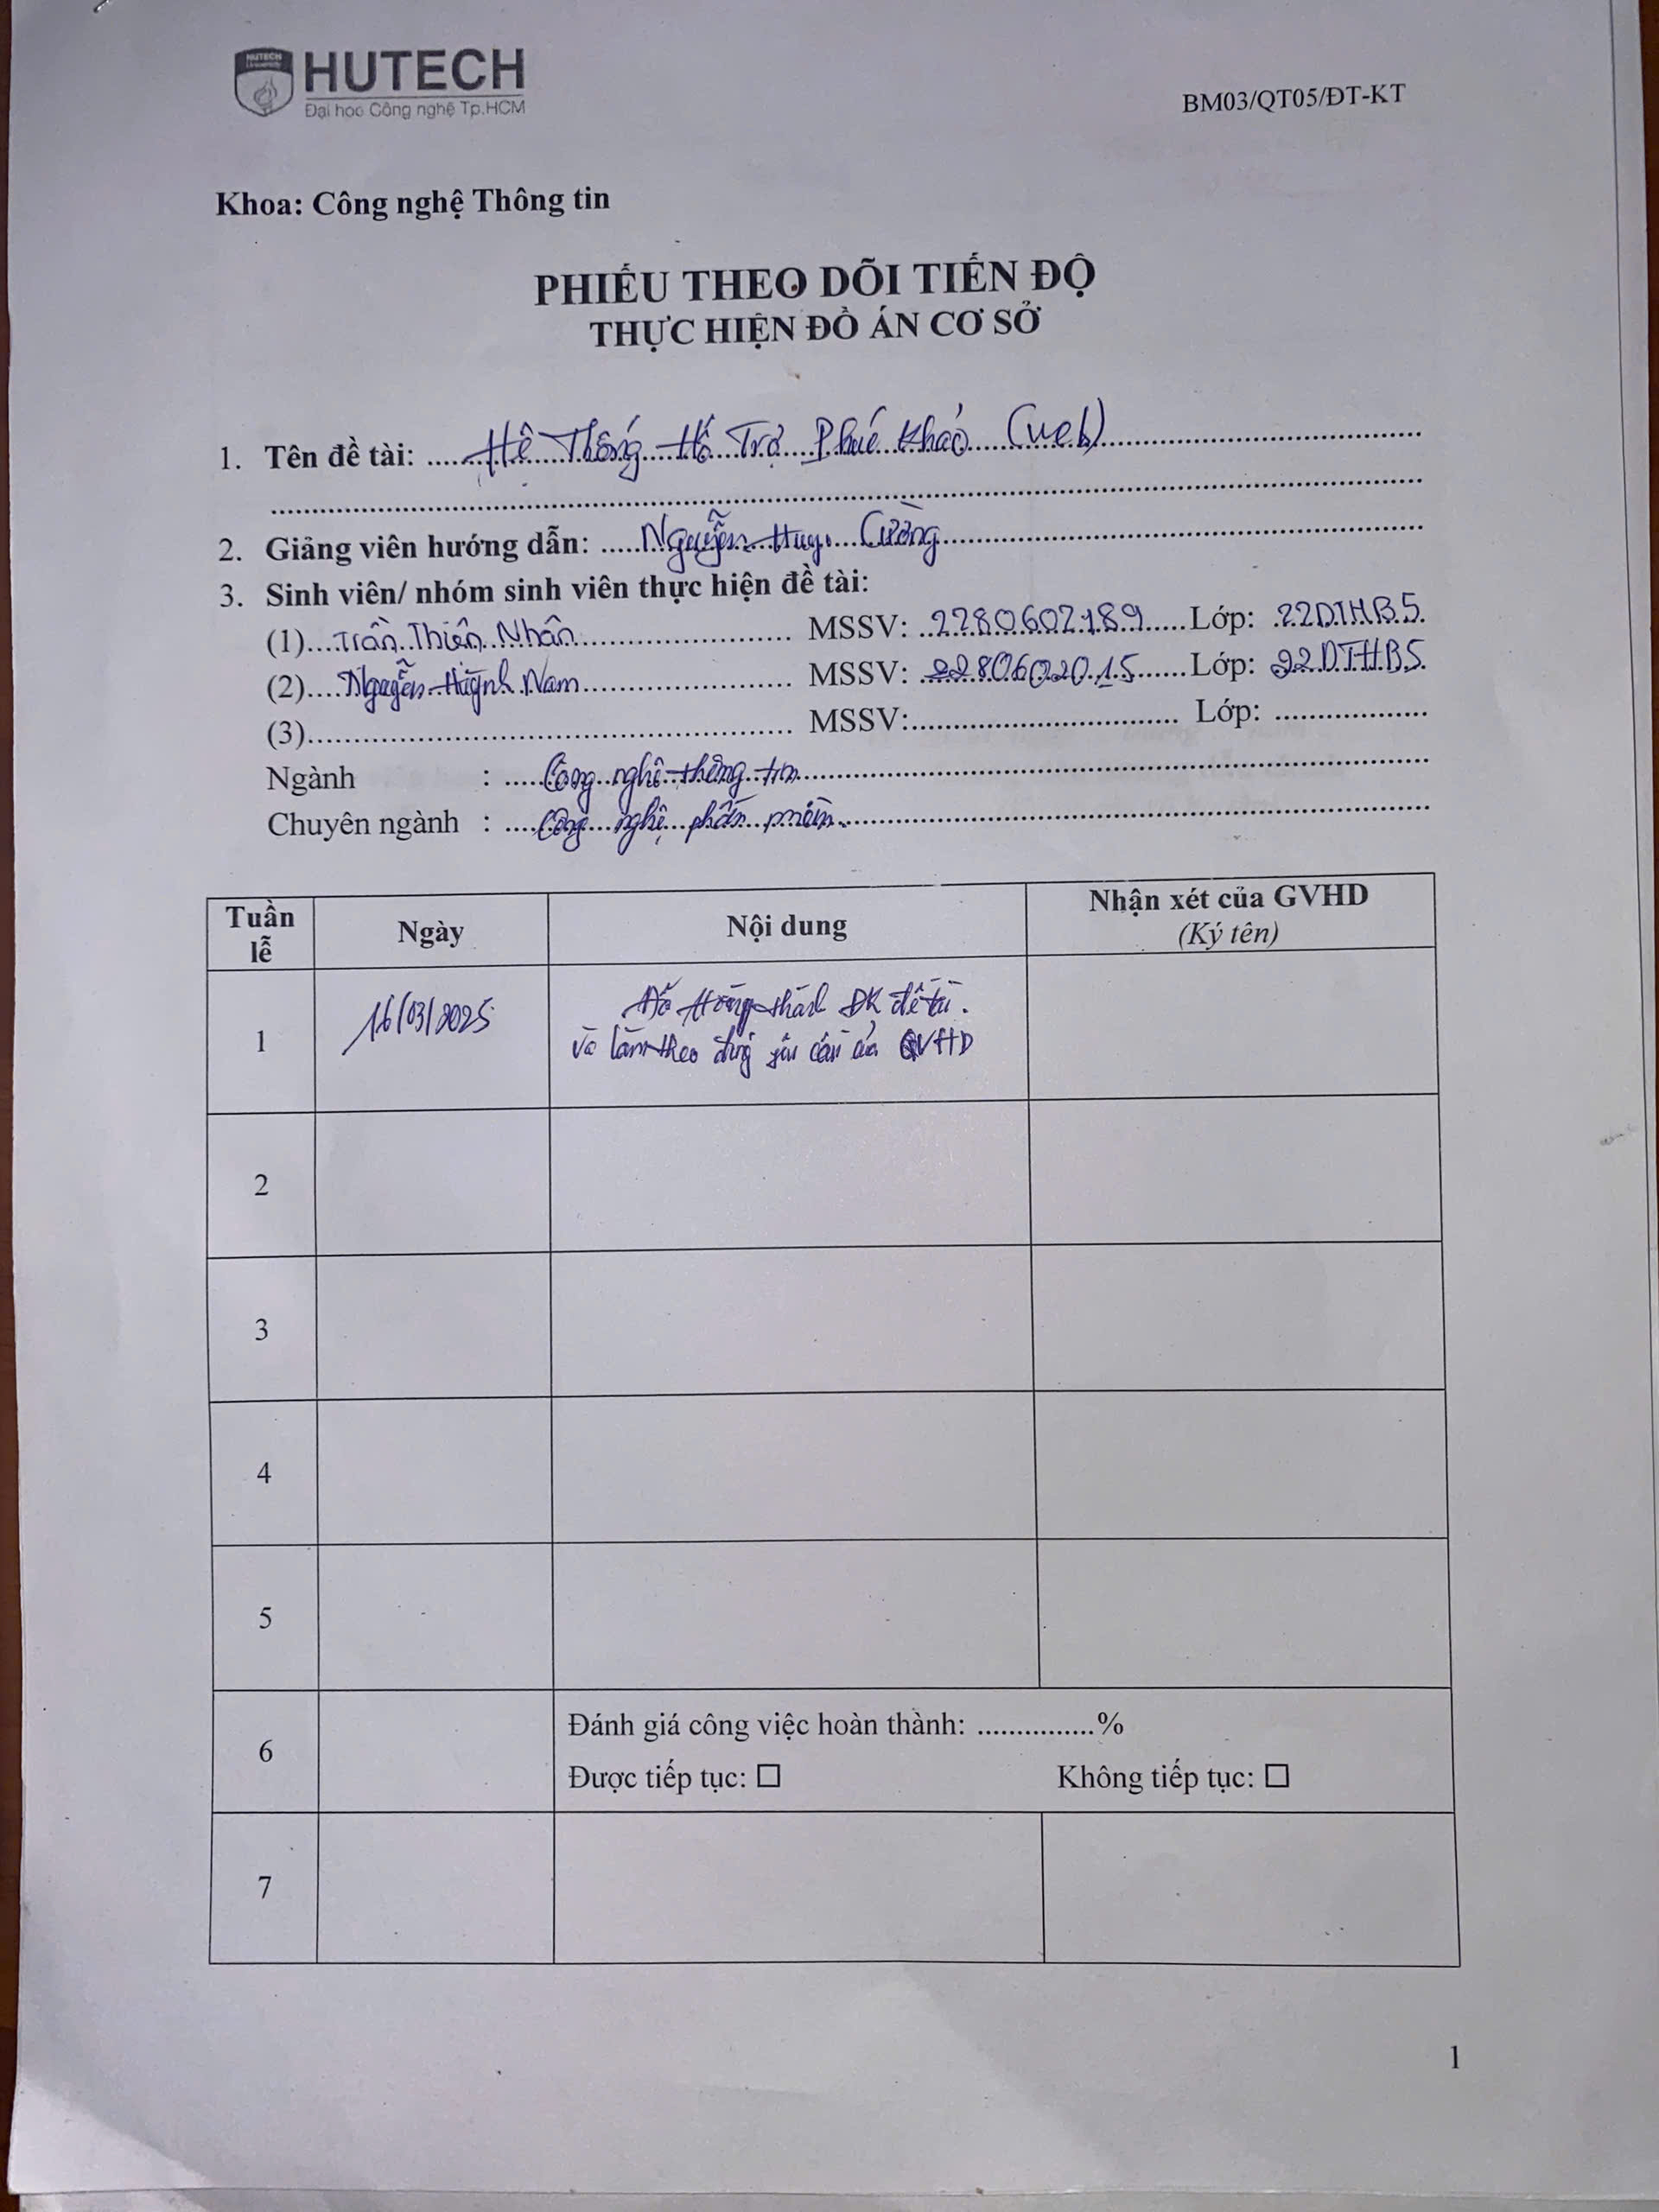 HUTECH
Đại học Công nghệ Tp.HCM
BM03/QT05/ĐT-KT
Khoa: Công nghệ Thông tin
PHIẾU THEO DÕI TIẾN ĐỘ
THỰC HIỆN ĐỒ ÁN CƠ SỞ
1. Tên đề tài: Hệ Thống Hỗ Trợ Phúc Khảo (web)
2. Giảng viên hướng dẫn: Nguyễn Huy Cường
3. Sinh viên/ nhóm sinh viên thực hiện đề tài:
(1) Trần Thiên Nhân MSSV: 2280602189 Lớp: 22DTHB5
(2) Nguyễn Huỳnh Nam MSSV: 2280602015 Lớp: 22DTHB5
(3) MSSV: Lớp:
Ngành : Công nghệ thông tin
Chuyên ngành : Công nghệ phần mềm
Tuần lễ Ngày Nội dung Nhận xét của GVHD
(Ký tên)
1 16/03/2025 ĐK đề tài.
và làm theo đúng yêu cầu của GVHD
2
3
4
5
6 Đánh giá công việc hoàn thành: ...............%
Được tiếp tục: ☐ Không tiếp tục: ☐
7
1